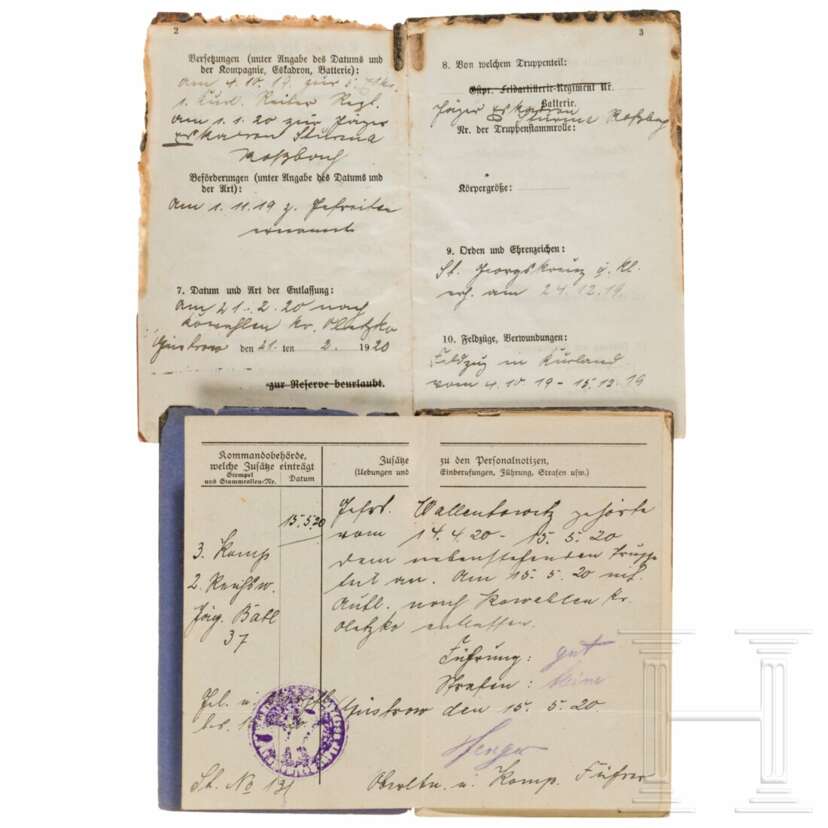 2
Versetzungen (unter Angabe des Datums und
der Kompagnie, Eskadron, Batterie):
am 4.10.19 zur
1. Kurl. Reiter Regt.
am 1.1.20 zur Jäger
Eskadron Sturm
Roßbach
Beförderungen (unter Angabe des Datums und
der Art):
Am 1.11.19 z. Gefreiten
ernannt
7. Datum und Art der Entlassung:
am 21.2.20 nach
Kowahlen Kr. Oletzko
Güstrow den 21 ten 2. 1920
zur Reserve beurlaubt.
3
8. Von welchem Truppenteil:
Ostpr. Feldartillerie-Regiment Nr.
Batterie.
Jäger Eskadron Sturm Roßbach
Nr. der Truppenstammrolle:
Körpergröße:
9. Orden und Ehrenzeichen:
St. Georgskreuz Kl.
am 24.12.19.
10. Feldzüge, Verwundungen:
Feldzug in Kurland
vom 4.10.19 - 15.12.19
Kommandobehörde,
welche Zusätze einträgt
Stempel
und Stammrollen-Nr.
Datum
Zusätze zu den Personalnotizen,
(Uebungen und Einberufungen, Führung, Strafen usw.)
15.5.20
3. Komp
2. Reichsw.
Jäg. Batl
37
St. No 131
Gefr. Wallentowitz gehörte
vom 14.4.20 - 15.5.20
dem nebenstehenden Truppen
teil an. Am 15.5.20 inf.
Aufl. nach Kowahlen Kr.
Oletzko entlassen.
Führung: gut
Strafen: keine
Güstrow den 15.5.20
Oberltn. u. Komp. Führer